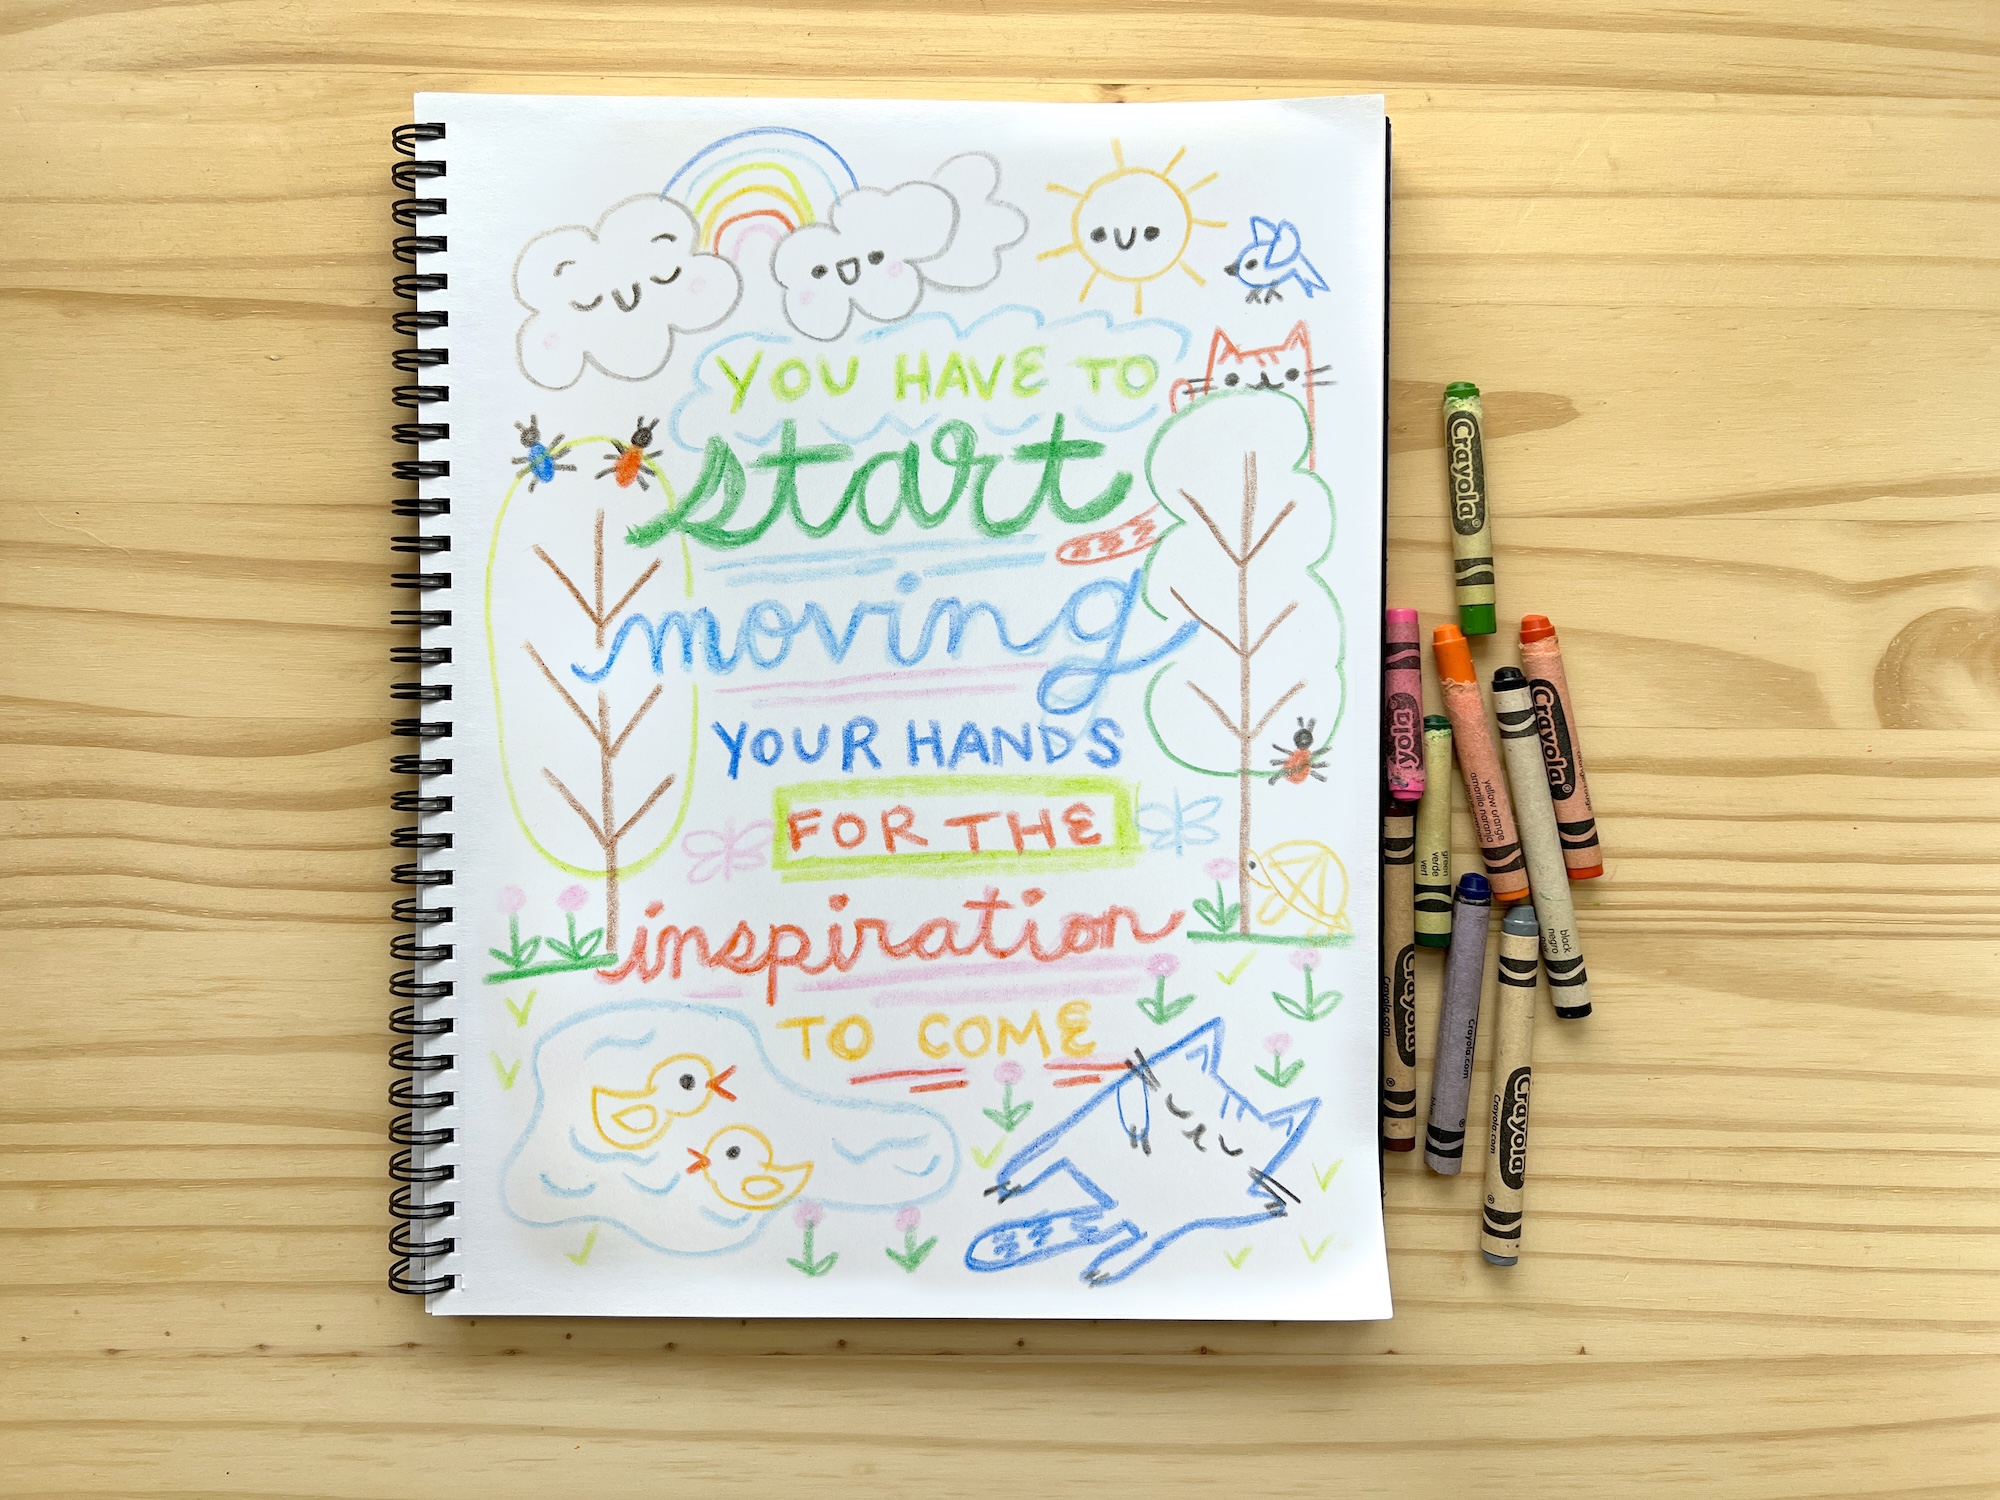 YOU HAVE TO
start
moving
YOUR HANDS
FOR THE
inspiration
TO COME
Crayola®
yola
Crayola
yellow orange
amarillo naranja
green
verde
vert
black
negro
Crayola
Crayola.com
Crayola.com
Crayola
Crayola.com